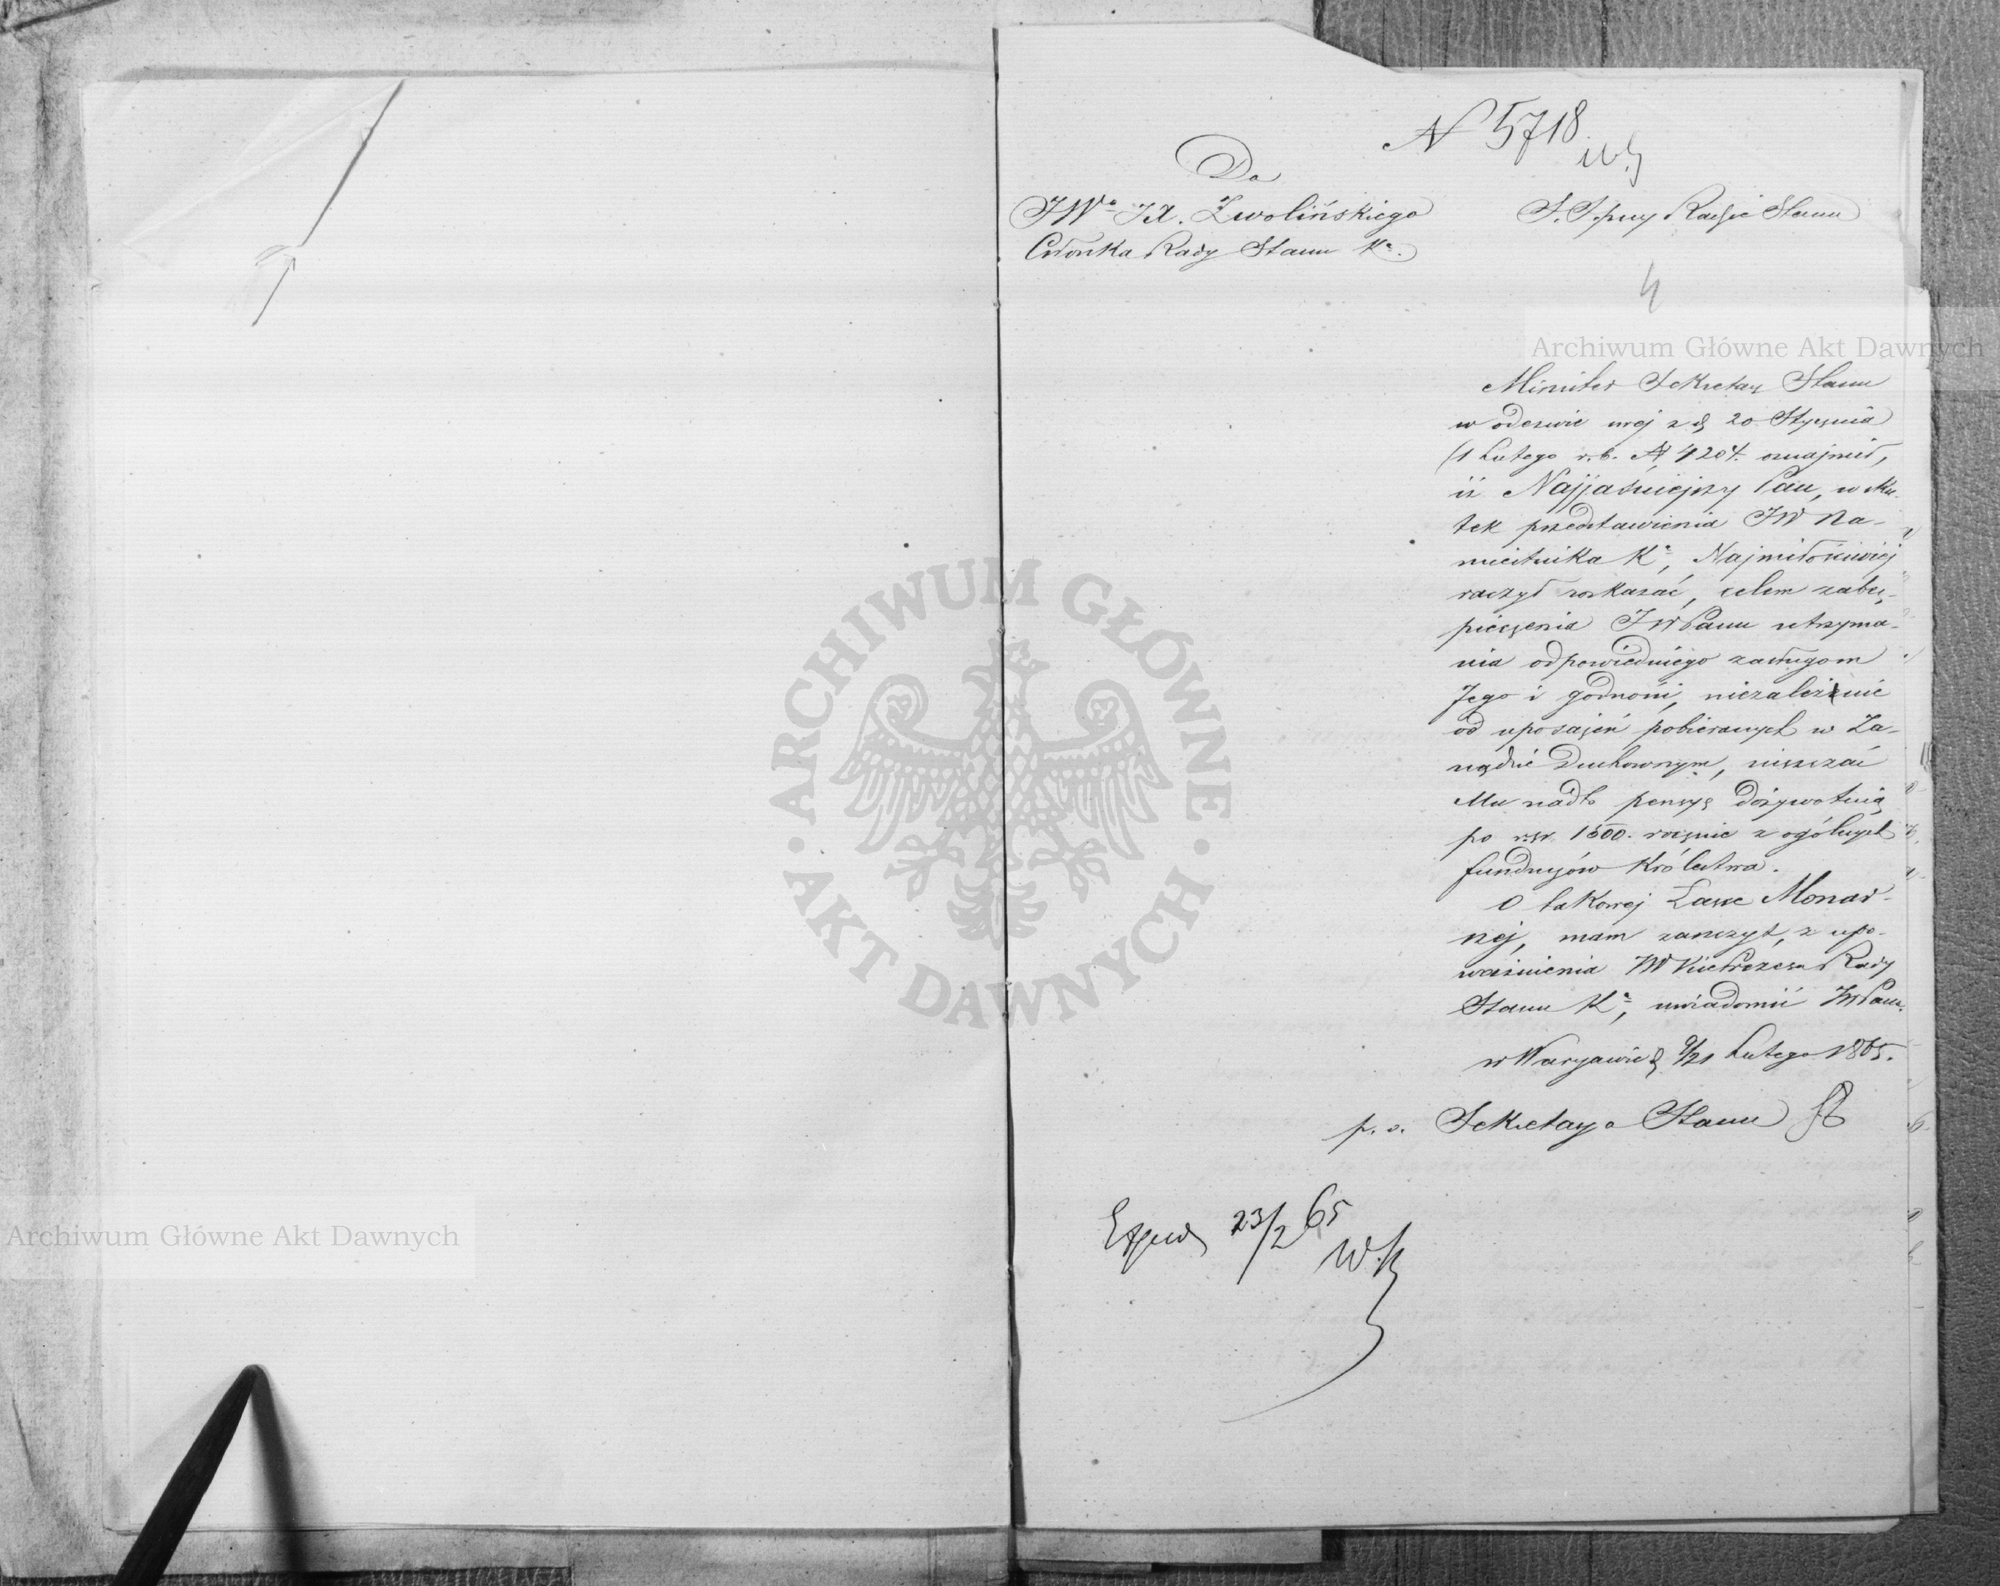 N 5718
Do
JWo JX. Zwolińskiego
Członka Rady Stanu Ka.
S. S. przy Radzie Stanu
4
Minister Sekretarz Stanu
w odezwie swej z d. 20 Stycznia
(1 Lutego r.b. N 4204. oznajmił,
iż Najjaśniejszy Pan, w sku-
tek przedstawienia JW Na-
miestnika Ka, Najmiłościwiej
raczył rozkazać, celem zabez-
pieczenia JWPanu utrzyma-
nia odpowiedniego zasługom
Jego i godności, niezależnie
od uposażeń pobieranych w Za-
rządzie Duchownym, uiszczać
Mu nadto pensyę dożywotnią
po rsr. 1500. rocznie z ogólnych
funduszów Królestwa.
O takowej Łasce Monar-
szej, mam zaszczyt, z upo-
ważnienia JW VicePrezesa Rady
Stanu Ka, uwiadomić JWPana.
w Warszawie d. 9/21 Lutego 1865.
p. o. Sekretarza Stanu
Exped 23/2 65
Archiwum Główne Akt Dawnych
ARCHIWUM GŁÓWNE
AKT DAWNYCH
Archiwum Główne Akt Dawnych